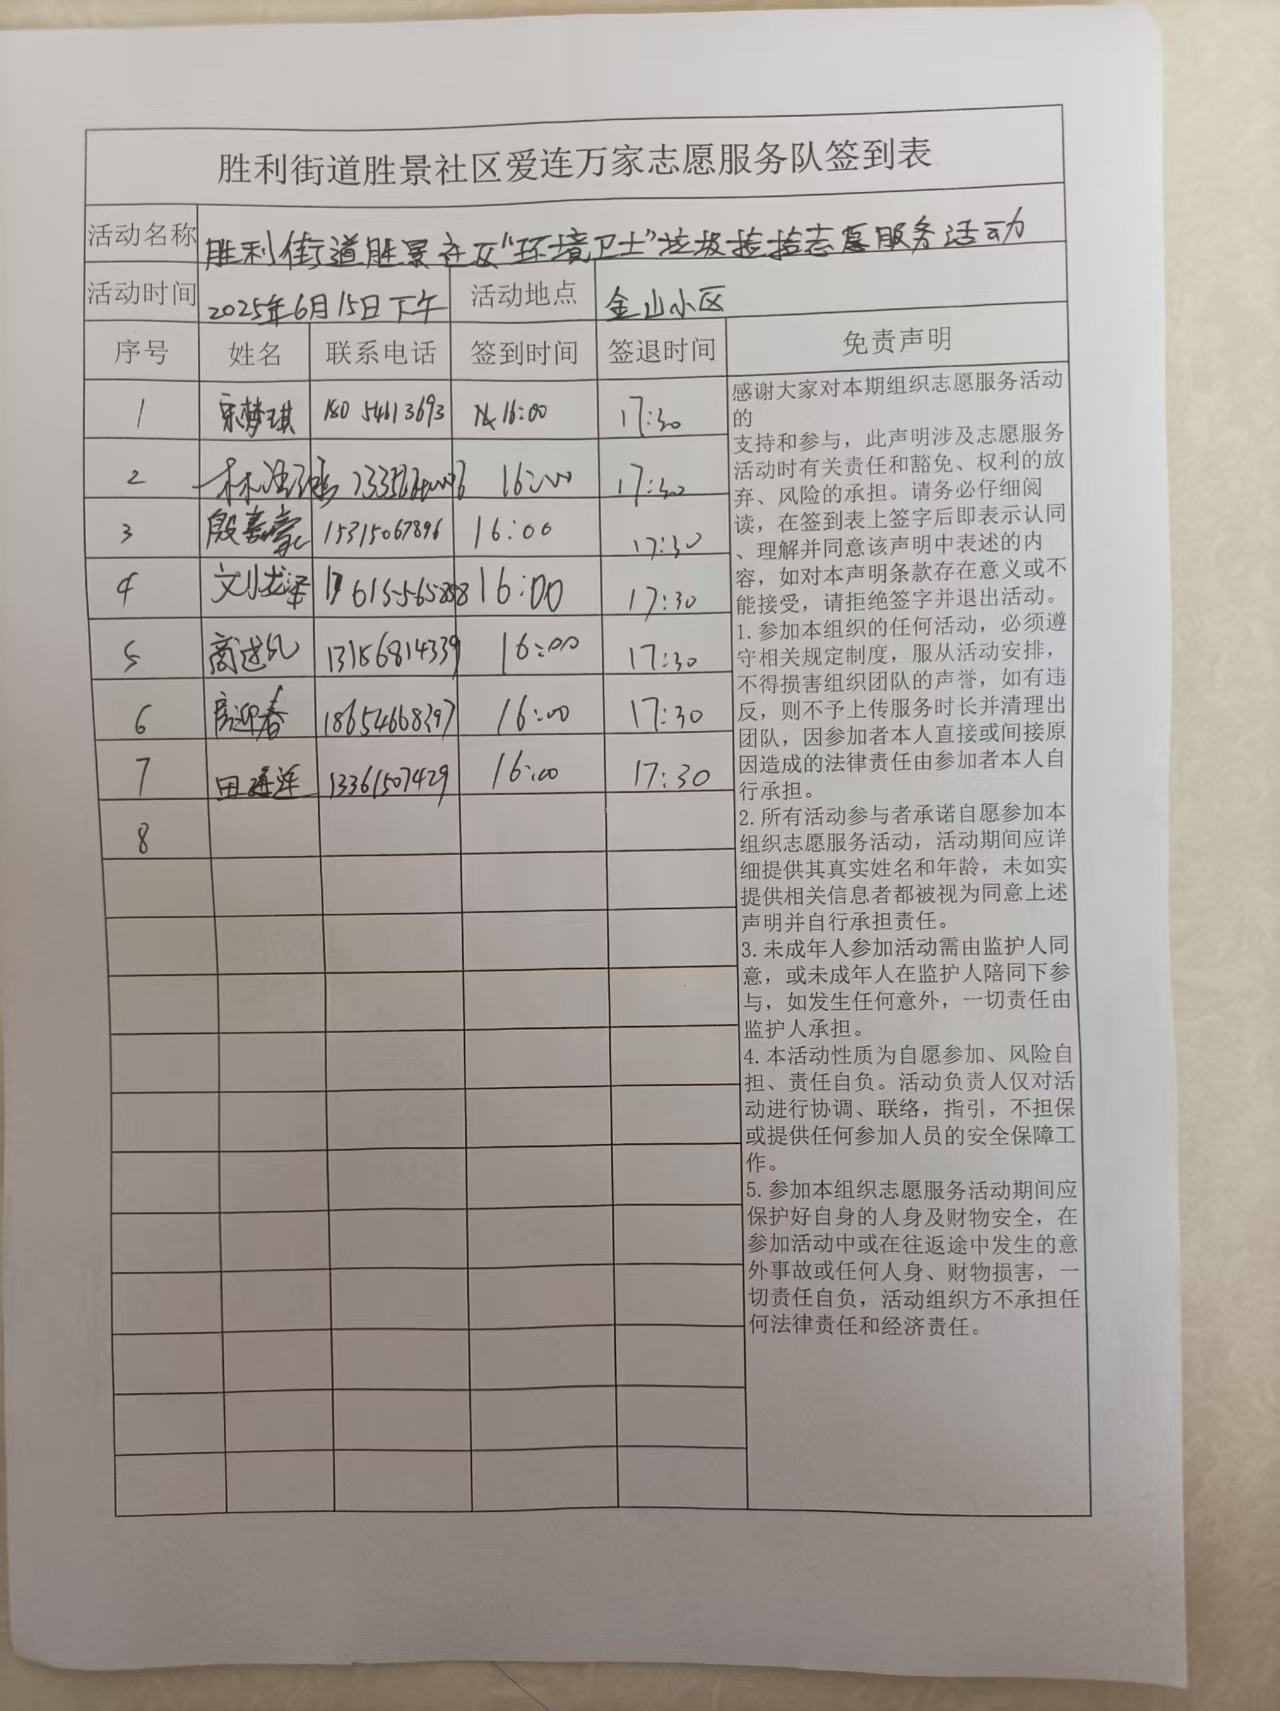 胜利街道胜景社区爱连万家志愿服务队签到表
活动名称 胜利街道胜景社区“环境卫士”垃圾捡拾志愿服务活动
活动时间 2025年6月15日下午 活动地点 金山小区
序号 姓名 联系电话 签到时间 签退时间 免责声明
1 宋梦琪 180 54613693 16:00 17:30
2 林 16:00 17:30
3 殷嘉豪 15315067896 16:00 17:30
4 刘龙泽 16:00 17:30
5 高进礼 13156814339 16:00 17:30
6 高迎春 18654668397 16:00 17:30
7 田 莲 13361507429 16:00 17:30
8
感谢大家对本期组织志愿服务活动
的
支持和参与，此声明涉及志愿服务
活动时有关责任和豁免、权利的放
弃、风险的承担。请务必仔细阅
读，在签到表上签字后即表示认同
、理解并同意该声明中表述的内
容，如对本声明条款存在意义或不
能接受，请拒绝签字并退出活动。
1.参加本组织的任何活动，必须遵
守相关规定制度，服从活动安排，
不得损害组织团队的声誉，如有违
反，则不予上传服务时长并清理出
团队，因参加者本人直接或间接原
因造成的法律责任由参加者本人自
行承担。
2.所有活动参与者承诺自愿参加本
组织志愿服务活动，活动期间应详
细提供其真实姓名和年龄，未如实
提供相关信息者都被视为同意上述
声明并自行承担责任。
3.未成年人参加活动需由监护人同
意，或未成年人在监护人陪同下参
与，如发生任何意外，一切责任由
监护人承担。
4.本活动性质为自愿参加、风险自
担、责任自负。活动负责人仅对活
动进行协调、联络，指引，不担保
或提供任何参加人员的安全保障工
作。
5.参加本组织志愿服务活动期间应
保护好自身的人身及财物安全，在
参加活动中或在往返途中发生的意
外事故或任何人身、财物损害，一
切责任自负，活动组织方不承担任
何法律责任和经济责任。